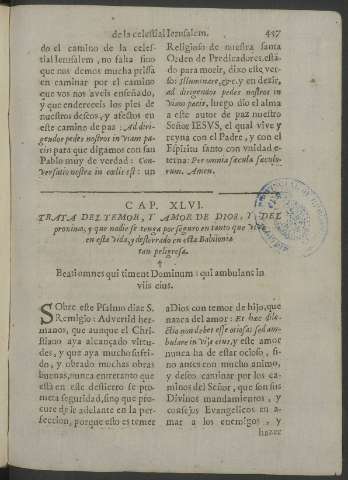 de la celestial Ierusalem. 447
do el camino de la celes-
tial Ierusalem, no falta sino
que nos demos mucha prissa
en caminar por el camino
que vos nos aveis enseñado,
y que enderceeis los pies de
nuestros deseos, y afectos en
este camino de paz: Ad diri-
gendos pedes nostros in viam pa-
cis para que digamos con san
Pablo muy de verdad: Con-
versatio nostra in cœlis est: un
Religioso de nuestra santa
Orden de Predicadores, està-
do para morir, dixo este ver-
so: Illuminare, &c. y en dezir,
ad dirigendos pedes nostros in
viam pacis, luego dio el alma
a este autor de paz nuestro
Señor IESVS, el qual vive y
reyna con el Padre, y con el
Espiritu santo con vnidad e-
terna: Per omnia sæcula sæculo-
rum. Amen.
CAP. XLVI.
TRATA DEL TEMOR, Y AMOR DE DIOS, Y DEL
proximo, y que nadie se tenga por seguro en tanto que vive
en esta vida, y desterrado en esta Babilonia
tan peligrosa.
Beati omnes qui timent Dominum: qui ambulant in
viis eius.
SObre este Psalmo dize S.
Remigio: Advertid her-
manos, que aunque el Chris-
tiano aya alcançado virtu-
des, y que aya mucho sufri-
do, y obrado muchas obras
buenas, nunca entretanto que
està en este destierro se pro-
meta seguridad, sino que pro-
cure de ir adelante en la per-
feccion, porque esto es temer
a Dios con temor de hijo, que
nazca del amor: Et hæc dile-
ctio non debet esse otiosa: sed am-
bulare in viis eius, y este amor
nunca ha de estar ocioso, si-
no antes con mucho animo,
y deseo caminar por los ca-
minos del Señor, que son sus
Divinos mandamientos, y
consejos Evangelicos en a-
mar a los enemigos, y
hazer